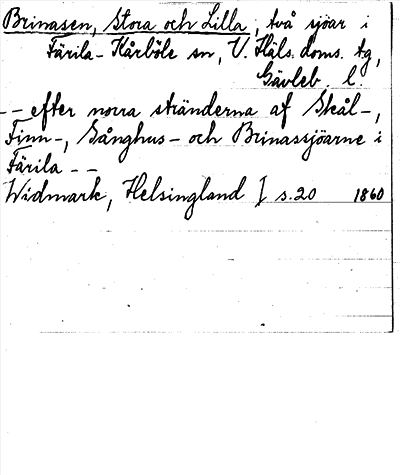 Brinasen, Stora och Lilla, två sjöar i
Färila-Kårböle sn, V. Häls. doms. tg,
Gävleb. l.
-- efter norra stränderna af Skål-,
Finn-, Gånghus- och Brinassjöarne i
Färila --
Widmark, Helsingland I s. 20 1860